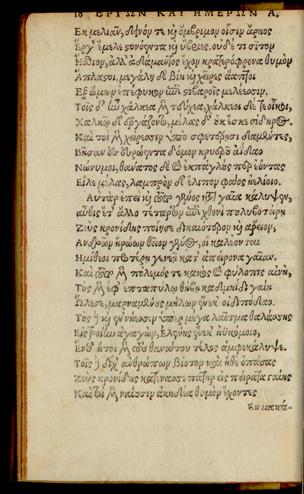 18 ΕΡΓΩΝ ΚΑΙ ΗΜΕΡΩΝ Α.
Ἐκ μελιᾶν, δεινόν τε καὶ ὄμβριμον οἷσιν ἄρηος
Ἔργ' ἔμελε στονόεντα καὶ ὕβριες. οὐδέ τι σῖτον
Ἤσθιον, ἀλλ' ἀδάμαντος ἔχον κρατερόφρονα θυμὸν
Ἄπλαστοι. μεγάλη δὲ βίη καὶ χεῖρες ἄαπτοι
Ἐξ ὤμων ἐπέφυκον ἐπὶ στιβαροῖς μελέεσσιν.
Τοῖς δ' ἦν χάλκεα μὲν τεύχεα, χάλκεοι δέ τε οἶκοι,
Χαλκῷ δ' ἐργάζοντο, μέλας δ' οὐκ ἔσκε σίδηρος.
Καὶ τοὶ μὲν χείρεσσιν ὑπὸ σφετέρῃσι δαμέντες,
Βῆσαν ἐς εὐρώεντα δόμον κρυεροῦ ἀΐδαο
Νώνυμοι, θάνατος δὲ καὶ ἐκπάγλους περ ἐόντας
Εἷλε μέλας, λαμπρὸν δ' ἔλιπον φάος ἠελίοιο.
Αὐτὰρ ἐπεὶ καὶ τοῦτο γένος κατὰ γαῖα κάλυψεν,
αὖθις ἔτ' ἄλλο τέταρτον ἐπὶ χθονὶ πολυβοτείρῃ
Ζεὺς κρονίδης ποίησε δικαιότερον καὶ ἄρειον,
Ἀνδρῶν ἡρώων θεῖον γένος, οἳ καλέονται
Ἡμίθεοι προτέρῃ γενεῇ κατ' ἀπείρονα γαῖαν.
Καὶ τοὺς μὲν πόλεμός τε κακὸς καὶ φύλοπις αἰνὴ,
Τοὺς μὲν ἐφ' ἑπταπύλῳ θήβῃ καδμηΐδι γαίῃ
Ὤλεσε, μαρναμένους μήλων ἕνεκ' οἰδιπόδαο.
Τοὺς δὲ καὶ ἐν νήεσσιν ὑπὲρ μέγα λαῖτμα θαλάσσης
Ἐς τροίην ἀγαγὼν, ἑλένης ἕνεκ' ἠϋκόμοιο,
Ἔνθ' ἤτοι τοὺς μὲν θανάτου τέλος ἀμφεκάλυψε.
Τοῖς δὲ δίχ' ἀνθρώπων βίοτον καὶ ἤθε' ὀπάσσας
Ζεὺς κρονίδης κατένασσε πατὴρ ἐς πείρατα γαίης
Καὶ τοὶ μὲν ναίουσιν ἀκηδέα θυμὸν ἔχοντες
Ἐν μακά-